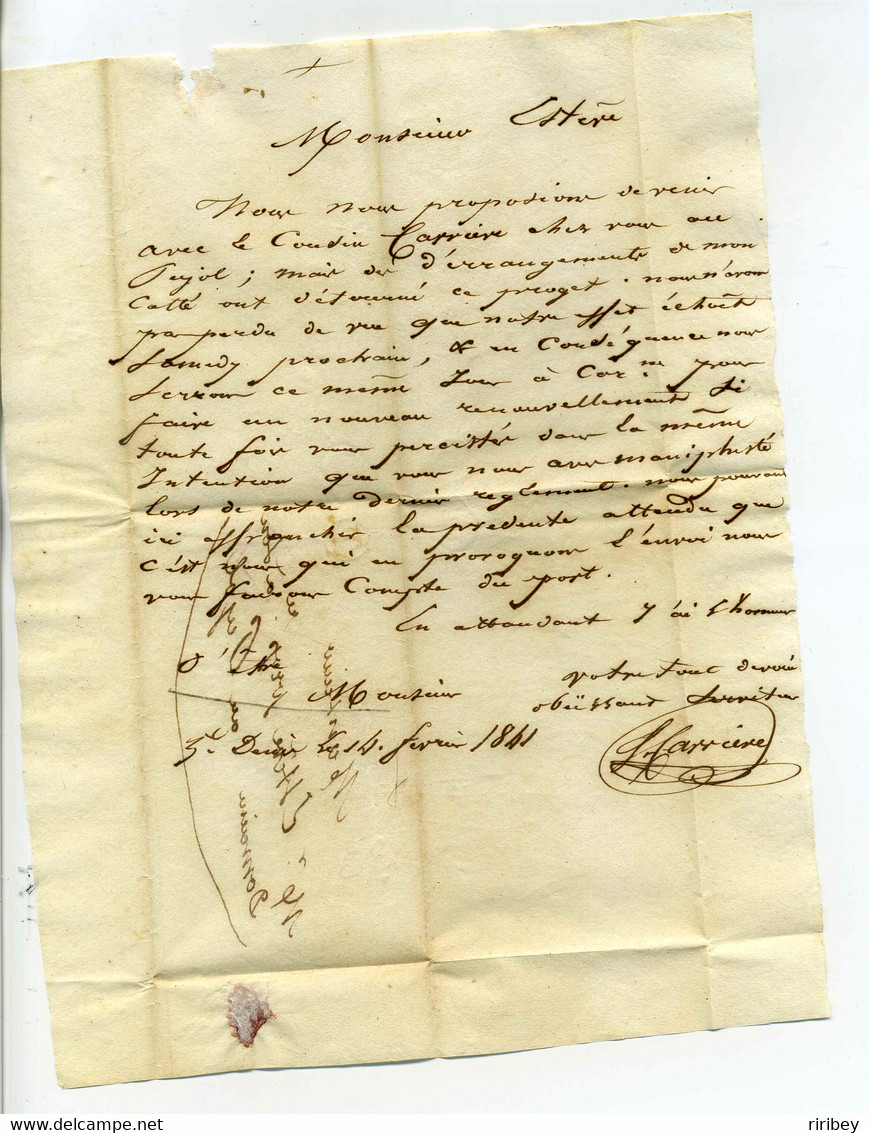 Monsieur Estève
Nous nous proposions de venir
avec le Cousin Carrière chez vous au
Pujol ; mais des d'érrangements de mon
Cotté ont détourné ce proget. nous n'avons
pas perdu de vue que notre effet échoit
Samedy prochain, & en Conséquence nous
Serons ce même Jour à Car.ne pour
faire un nouveau renouvellement Si
toute fois vous percistés dans la même
Intention que vous nous aves maniphesté
lors de notre dernier reglement. nous pouvons
ici affranchir la présente attendu que
c'est nous qui en provoquons l'envoi nous
vous faisons Compte du port.
En attandant J'ai l'honneur
d'être
Monsieur
votre tout devoué
obéissant Serviteur
St. Denis le 14. fevrier 1841
Carrière